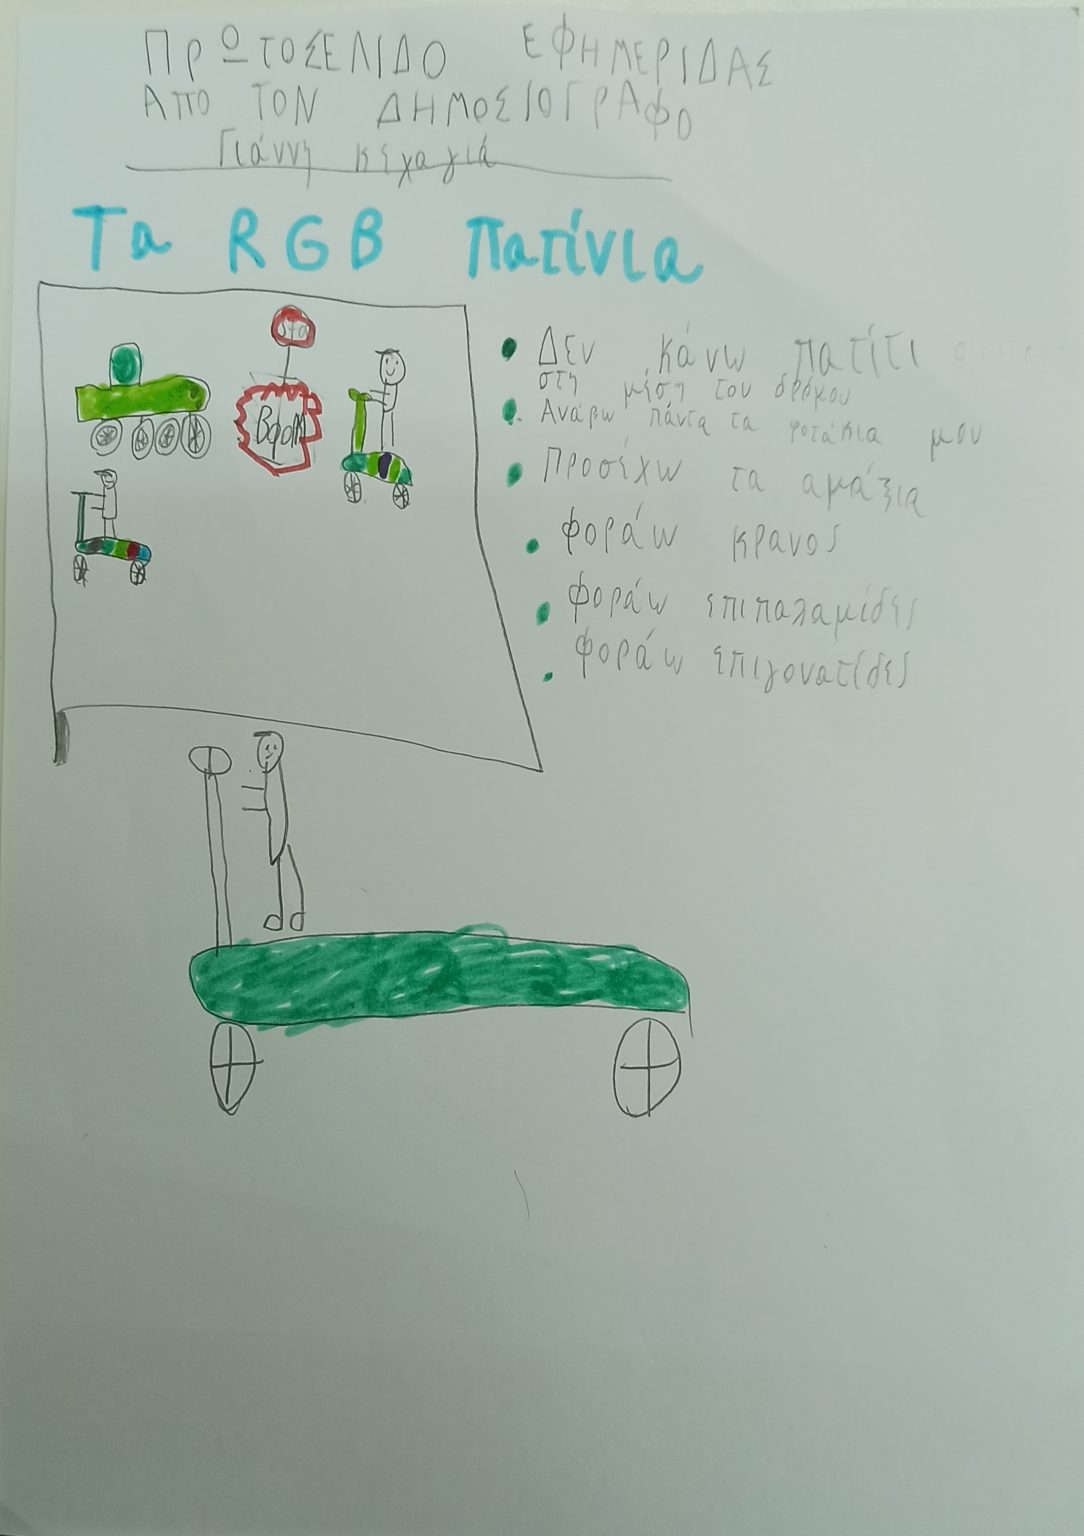 ΠΡΩΤΟΣΕΛΙΔΟ ΕΦΗΜΕΡΙΔΑΣ
ΑΠΟ ΤΟΝ ΔΗΜΟΣΙΟΓΡΑΦΟ
Γιάννη Κεχαγιά
Τα RGB πατίνια
Βφομ
• Δεν κάνω πατίτι
στη μέση του δρόμου
• Ανάβω πάντα τα φοτάκια μου
• Προσέχω τα αμάξια
• φοράω κρανος
• φοράω επιπαλαμίδες
• φοράω επιγονατίδες